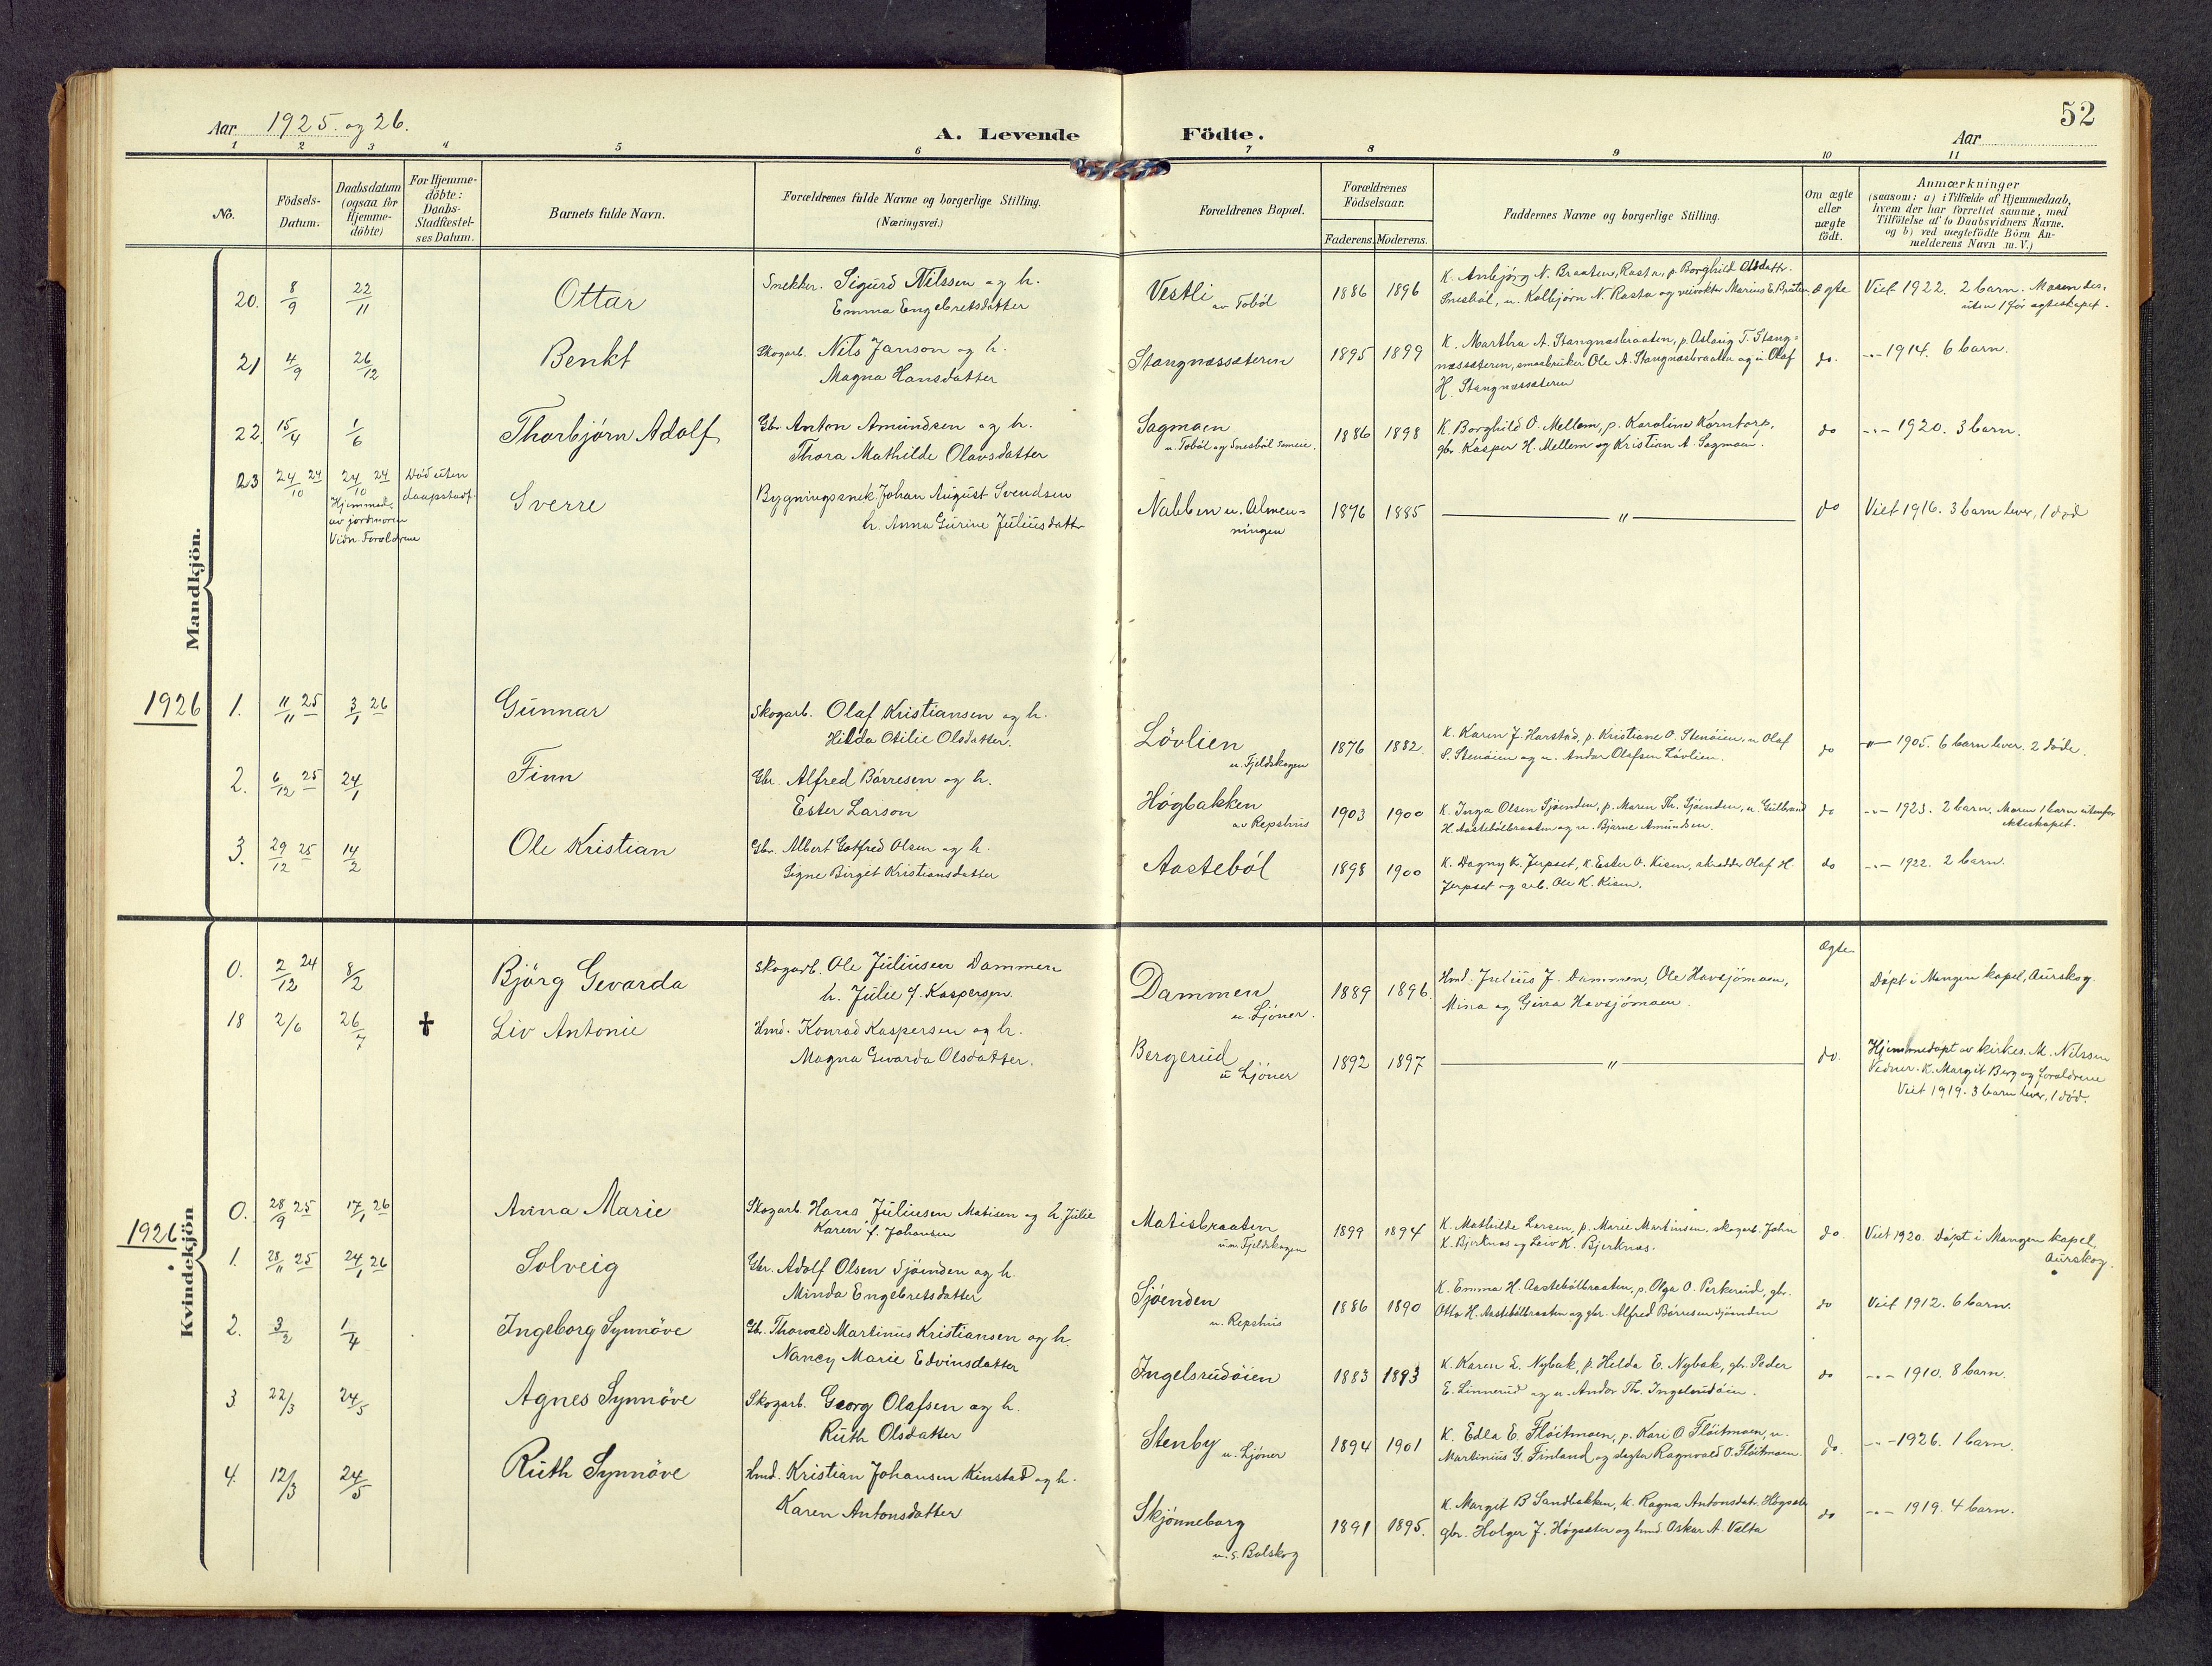 Aar 1925. og 26.
A. Levende Födte.
Aar
52
1 2 3 4 5 6 7 8 9 10 11
No.
Födsels-
Datum.
Daabsdatum
(ogsaa for
Hjemme-
döbte)
For Hjemme-
döbte:
Daabs-
Stadfæstel-
ses Datum.
Barnets fulde Navn.
Forældrenes fulde Navne og borgerlige Stilling.
(Næringsvei.)
Forældrenes Bopæl.
Forældrenes
Födselsaar.
Faderens. Moderens.
Faddernes Navne og borgerlige Stilling.
Om ægte
eller
uægte
födt.
Anmærkninger
(saasom: a) i Tilfælde af Hjemmedaab,
hvem der har forrettet samme, med
Tilföielse af to Daabsvidners Navne.
og b) ved uægtefödte Börn An-
melderens Navn m. V.)
Mandkjön.
20. 8/9 22/11 Ottar
Snekker. Sigurd Nilssen og h.
Emma Engebretsdatter
Vestli
av Toból
1886 1896
K. Anbjørg N. Braaten, Rasta, p. Borghild Olsdattr.
Snesból, u. Kolbjørn N. Rasta og veivokter Marius E. Bråten.
Ægte
Viet 1922. 2 barn. Moren des-
uten 1 før egteskapet.
21 4/9 26/12 Benkt
Skogarb. Nils Janson og h.
Magna Hansdatter
Stangnessæteren
1895 1899
K. Martha A. Stangnesbraaten, p. Aslaug T. Stang=
nessæteren, smaabruker Ole A. Stangnesbraaten og u. Olaf
H. Stangnessæteren
do.
-"- 1914. 6 barn.
22. 15/4 1/6 Thorbjørn Adolf
Gbr. Anton Amundsen og h.
Thora Mathilde Olavsdatter
Sagmoen
u. Toból og Snesból sameie.
1886 1898
K. Borghild O. Mellem, p. Karoline Korntorp,
gbr. Kasper H. Mellem og Kristian A. Sagmoen.
do
-"- 1920. 3 barn.
23 24/10 24 24/10 24
Hjemmed.
av jordmoren
Vidn. Foreldrene
Död uten
daapstadf.
Sverre
Bygningssnek. Johan August Svendsen
h. Anna Gurine Juliusdatter
Nabben u. Almen=
ningen
1876 1885
"
do
Viet 1916. 3 barn lever, 1 død
1926
1. 11/11 25 3/1 26 Gunnar
Skogarb. Olaf Kristiansen og h.
Hilda Otilie Olsdatter.
Lövlien
u. Fjeldskogen
1876 1882.
K. Karen J. Harstad, p. Kristiane O. Stenöien, u. Olaf
S. Stenöien og u. Andor Olafsen Lövlien.
do
-"- 1905. 6 barn lever. 2 döde.
2. 6/12 25 24/1 Finn
Gbr. Alfred Börresen og h.
Ester Larson
Högbakken
av Repshus
1903 1900
K. Inga Olsen Sjöenden, p. Maren Th. Sjöenden, u. Gulbrand
H. Aastebólbraaten og u. Bjarne Amundsen.
do
-"- 1923. 2 barn. Moren 1 barn utenfor
ekteskapet.
3. 29/12 25 14/2 Ole Kristian
Gbr. Albert Gotfred Olsen og h.
Signe Birgit Kristiansdatter
Aasteból
1898 1900
K. Dagny K. Jerpset, K. Ester O. Kisen, skredder Olaf H.
Jerpset og arb. Ole K. Kisen.
do
-"- 1922. 2 barn.
Kvindekjön
0. 2/12 24 8/2 Bjørg Gevarda
Skogarb. Ole Juliusen Dammen
h. Julie f. Kaspersen.
Dammen
u. Ljöner.
1889 1896.
Hmd. Julius J. Dammen, Ole Havsjömoen,
Mina og Gina Havsjömoen.
Ægte
Döpt i Mangen kapel, Aurskog.
18 2/6 26/7 ✝ Liv Antonie
Hmd. Konrad Kaspersen og h.
Magna Gevarda Olsdatter.
Bergerud
u Ljöner
1892 1897
"
do.
Hjemmedöpt av kirkes. M. Nilssen
Vidner. K. Margit Berg og foreldrene
Viet 1919. 3 barn lever, 1 død.
1926
0. 28/9 25 17/1 26 Anna Marie
Skogarb. Hans Juliusen Matisen og h. Julie
Karen f. Johansen
Matisbraaten
u. Fjeldskogen
1899 1894
K. Mathilde Larsen, p. Marie Martinsen. skogarb. John
K. Bjerknes og Leiv K. Bjerknes.
do.
Viet 1920. Döpt i Mangen kapel,
Aurskog.
1. 28/11 25 24/1 26 Solveig
Gbr. Adolf Olsen Sjöenden og h.
Minda Engebretsdatter
Sjöenden
u. Repshus
1886 1890
K. Emma H. Aastebólbraaten, p. Olga O. Perkerud, gbr.
Otto H. Aastebólbraaten og gbr. Alfred Börresen Sjöenden
do
Viet 1912. 6 barn.
2. 3/2 1/4 Ingeborg Synnöve
Gbr. Thorvald Martinius Kristiansen og h.
Nancy Marie Edvinsdatter
Ingelsrudöien
1883 1893
K. Karen E. Nybak, p. Helda E. Nybak, gbr. Peder
E. Linnerud og u. Andor Th. Ingelsrudöien.
do
-"- 1910. 8 barn.
3 22/3 24/5 Agnes Synnöve
Skogarb. Georg Olafsen og h.
Ruth Olsdatter
Stenby u. Ljöner
1894 1901
K. Edla E. Flöitmoen, p. Kari O. Flöitmoen, u.
Martinius G. Finland og slagter Ragnvald O. Flöitmoen.
do.
-"- 1926. 1 barn.
4. 12/3 24/5 Ruth Synnöve
Hmd. Kristian Johansen Kinstad og h.
Karen Antonsdatter
Skjönneborg
u. S. Bolskog
1891 1895.
K. Margit B. Sandbakken, K. Ragna Antonsdat. Högseter
gbr. Holger J. Högseter og hmd. Oskar A. Velta
do
-"- 1919. 4 barn.